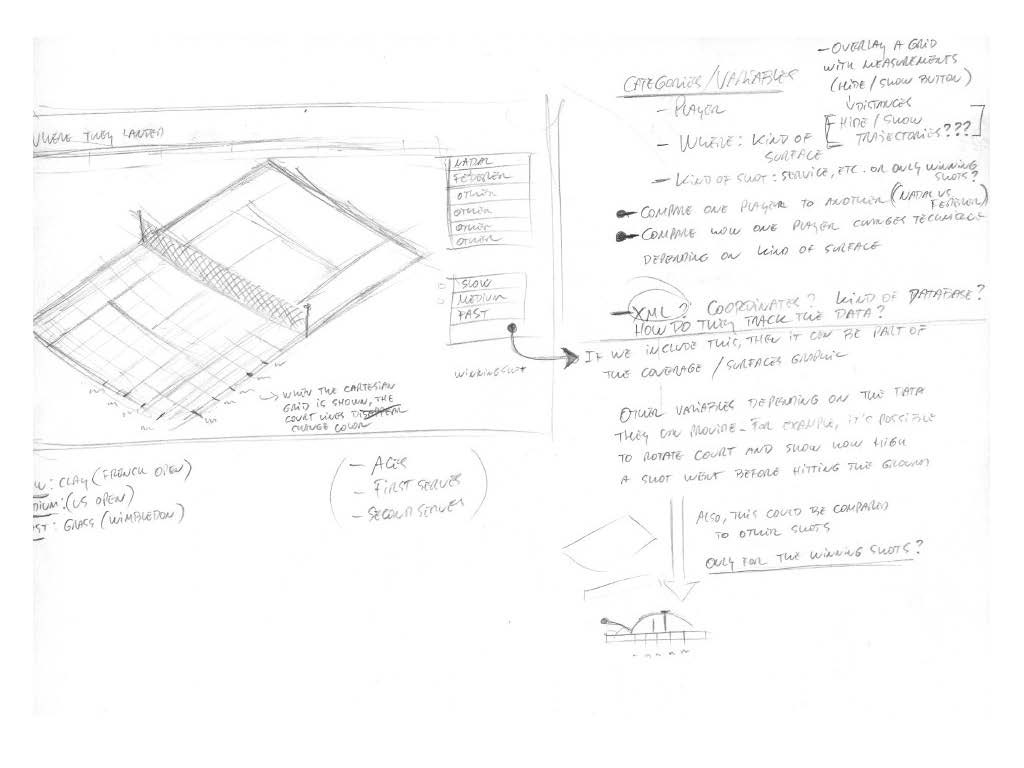 WHERE THEY LANDED
NADAL
FEDERER
OTHER
OTHER
OTHER
OTHER
SLOW
MEDIUM
FAST
WINNING SHOT
→ WHEN THE CARTESIAN
GRID IS SHOWN, THE
COURT LINES DISAPPEAR
CHANGE COLOR
: CLAY (FRENCH OPEN)
DIUM: (US OPEN)
ST: GRASS (WIMBLEDON)
- ACES
- FIRST SERVES
- SECOND SERVES
- OVERLAY A GRID
WITH MEASUREMENTS
(HIDE / SHOW BUTTON)
DISTANCES
HIDE / SHOW
TRAJECTORIES???
CATEGORIES/VARIABLES
- PLAYER
- WHERE: KIND OF
SURFACE
- KIND OF SHOT: SERVICE, ETC. OR ONLY WINNING
SHOTS?
COMPARE ONE PLAYER TO ANOTHER (NADAL VS
FEDERER)
COMPARE HOW ONE PLAYER CHANGES TECHNIQUE
DEPENDING ON KIND OF SURFACE
- XML? COORDINATES? KIND OF DATABASE?
HOW DO THEY TRACK THE DATA?
IF WE INCLUDE THIS, THEN IT CAN BE PART OF
THE COVERAGE / SURFACES GRAPHIC
OTHER VARIABLES DEPENDING ON THE DATA
THEY CAN PROVIDE - FOR EXAMPLE, IT'S POSSIBLE
TO ROTATE COURT AND SHOW HOW HIGH
A SHOT WENT BEFORE HITTING THE GROUND
ALSO, THIS COULD BE COMPARED
TO OTHER SHOTS
ONLY FOR THE WINNING SHOTS?